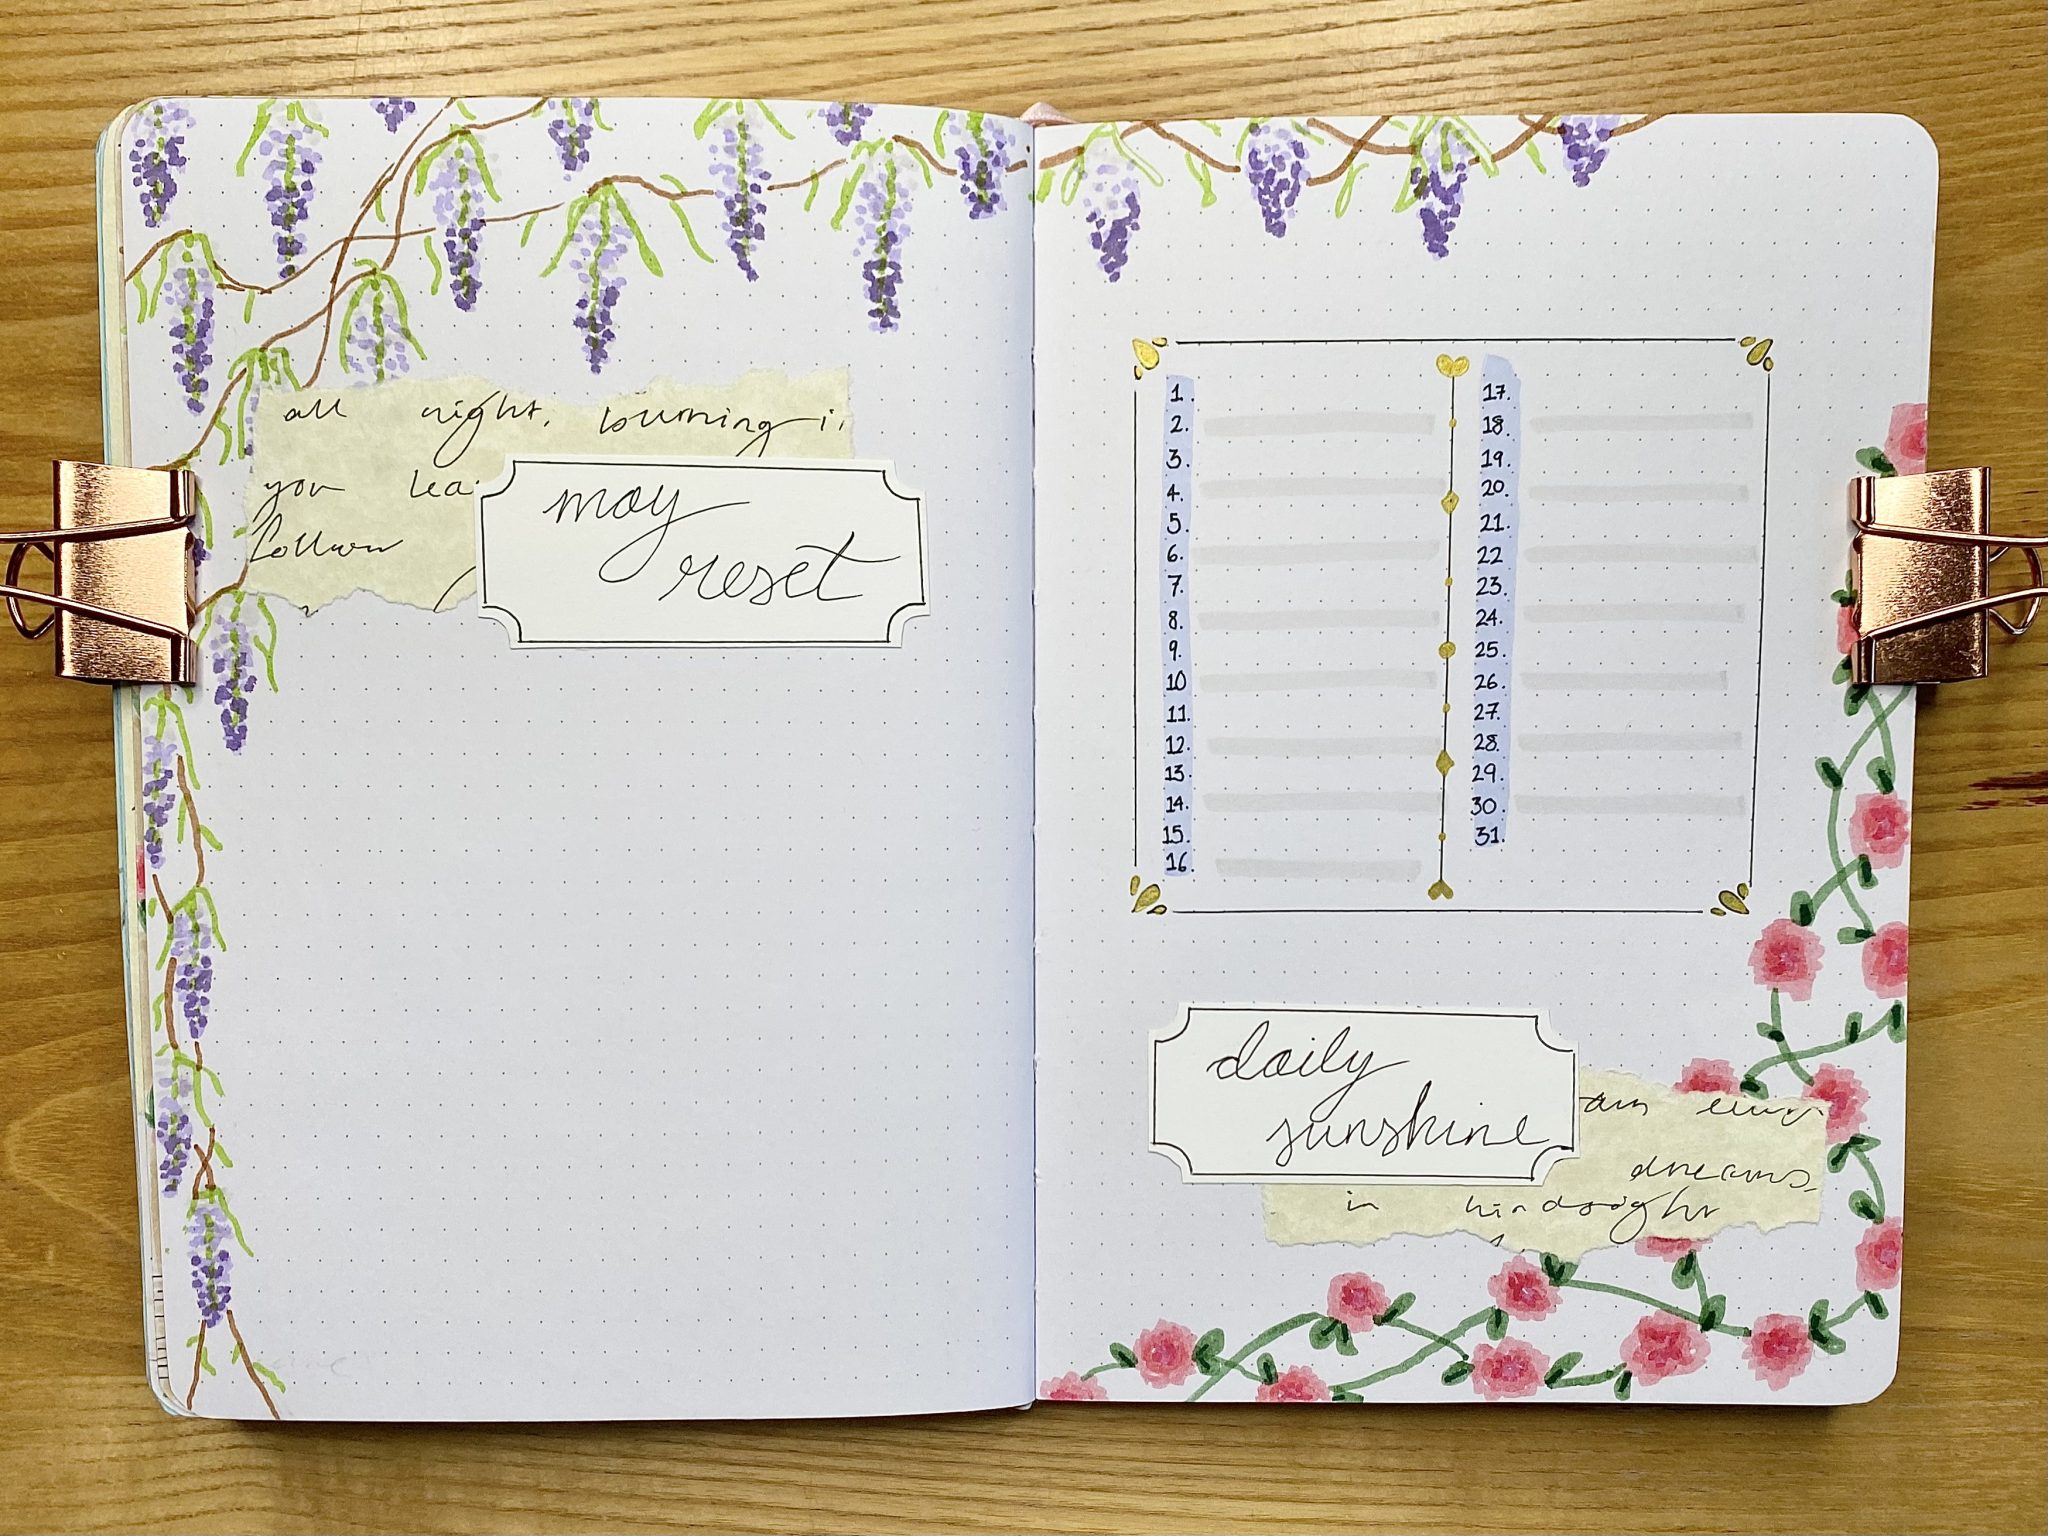 all night, burning i
you lea
follow
may
reset
1.
2.
3.
4.
5.
6.
7.
8.
9.
10
11.
12.
13.
14.
15.
16
17.
18.
19.
20.
21.
22
23.
24.
25.
26.
27.
28.
29.
30.
31.
daily
sunshine
dreams,
in hindsight